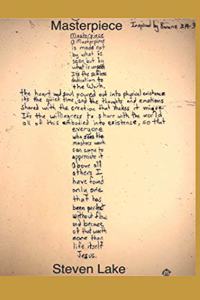 Masterpiece
Inspired by Romans
Masterpiece
A Masterpiece
is made not
by what is
seen but by
what is unseen
Its the selfless
dedication to
the Work,
the heart and soul poured out into physical existence
its the quiet time, and the thoughts and emotions
shared with the creation that makes it unique
Its the willingness to share with the world
all of this embodied into existence, so that
everyone
who sees the
masters work
can come to
appreciate it
above all
others I
have found
only one
that has
been perfect
without flaw
and because
of that worth
more than
life itself
Jesus.
Steven Lake